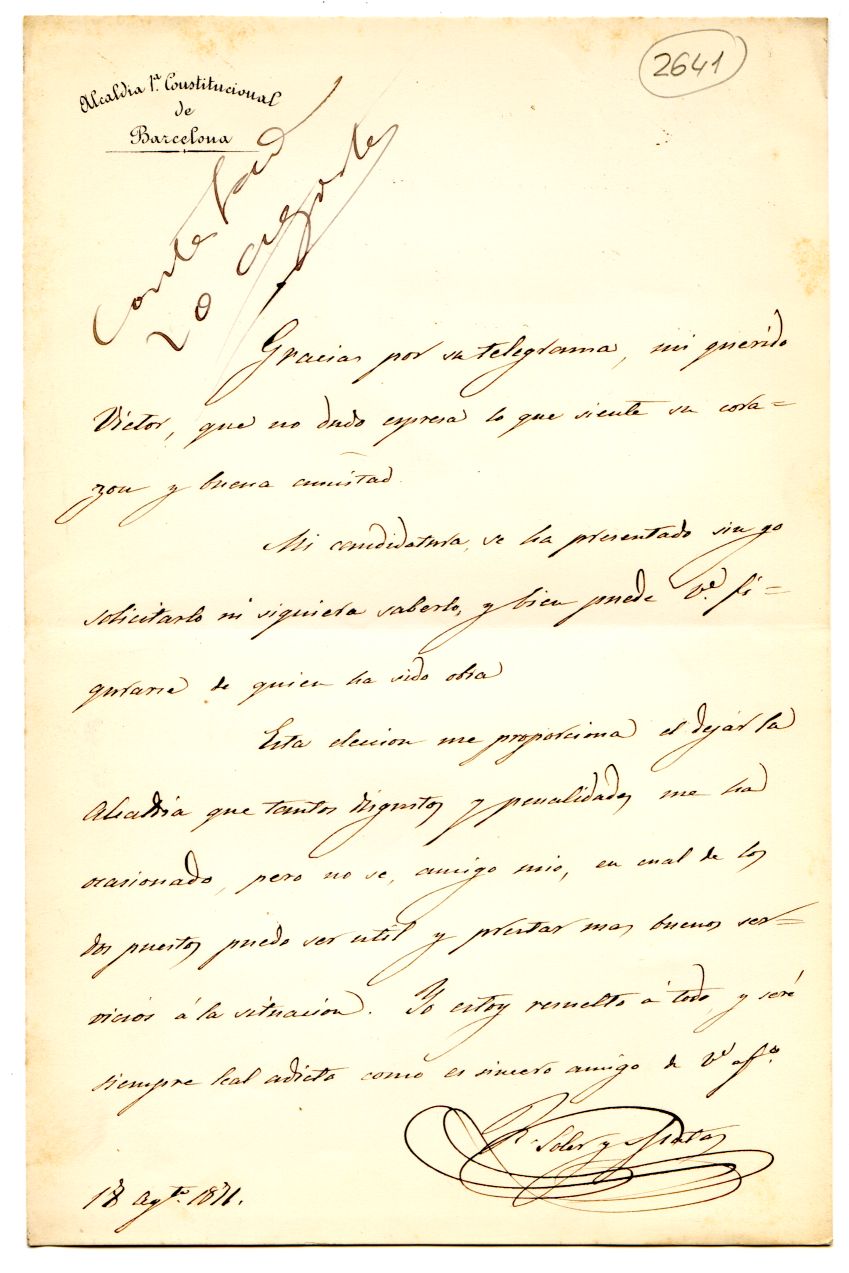 2641
Alcaldía 1ª Constitucional
de
Barcelona
Contestad
20 agosto
Gracias por su telegrama, mi querido
Victor, que no dudo espresa lo que siente su cora=
zon y buena amistad
Mi candidatura, se ha presentado sin yo
solicitarlo ni siquiera saberlo, y bien puede Vd. fi=
gurarse de quien ha sido obra
Esta eleccion me proporciona el dejár la
Alcaldia que tantos disgustos y penalidades me ha
ocasionado, pero no se, amigo mio, en cual de los
dos puestos puedo ser util y prestar mas buenos ser=
vicios á la situación. Yo estoy resuelto á todo, y seré
siempre leal adicto como es sincero amigo de Vd afº.
Soler y Matas
18 Agto. 1871.